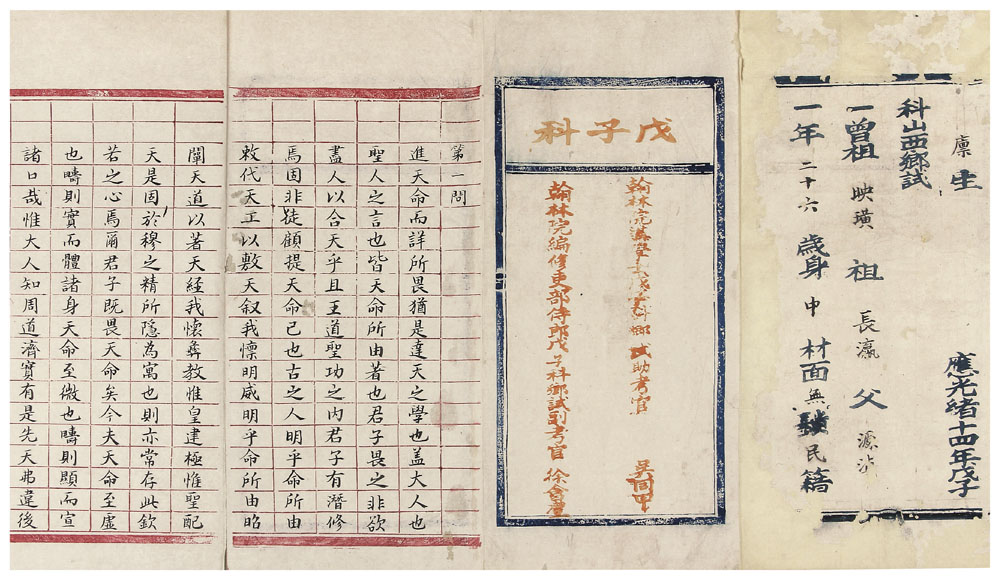 廪生
應光緒十四年戊子
科山西鄉試
一曾祖 映璜 祖 長瀛 父
一年二十六歲身中材面無 民籍
戊子科
翰林院 戊子科鄉試助考官 吳同甲
翰林院編修吏部侍郎戊子科鄉試副考官 徐會灃
第一問
進天命而詳所畏猶是達天之學也盖大人也
聖人之言也皆天命所由著也君子畏之非欲
盡人以合天乎且王道聖功之内君子有潛修
焉固非徒顧提天命已也古之人明乎命所由
敕代天工以敷天叙我懍明威明乎命所由昭
闡天道以著天經我懷彝教惟皇建極惟聖配
天是固於穆之精所隱為寓也則亦常存此欽
若之心焉爾君子既畏天命矣今夫天命至虚
也疇則實而體諸身天命至微也疇則顯而宣
諸口哉惟大人知周道濟實有是先天弗違後